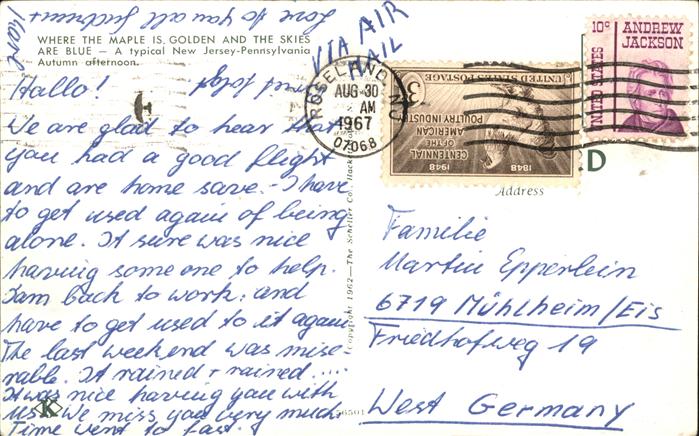 WHERE THE MAPLE IS GOLDEN AND THE SKIES
ARE BLUE — A typical New Jersey-Pennsylvania
Autumn afternoon.
Hallo!
We are glad to hear that
you had a good flight
and are home save. - I have
to get used again of being
alone. It sure was nice
having some one to help.
I am back to work, and
have to get used to it again
The last weekend was mise-
rable. It rained + rained ....
It was nice having you with
us. We miss you very much
Time went to fast.
Love to you all
VIA AIR
MAIL
ROSELAND, NJ
AUG 30
AM
1967
07068
3¢
UNITED STATES POSTAGE
CENTENNIAL
OF THE
AMERICAN
POULTRY INDUSTRY
1848 1948
10¢
ANDREW
JACKSON
UNITED STATES
D
Address
Familie
Martin Epperlein
6719 Mühlheim/Eis
Friedhofweg 19
West Germany
Copyright 1962—The Scheller Co., Hacke
K
56501